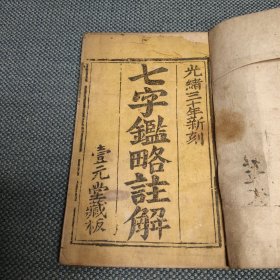 光緒三十年新刻
七字鑑略註解
壹元堂藏板